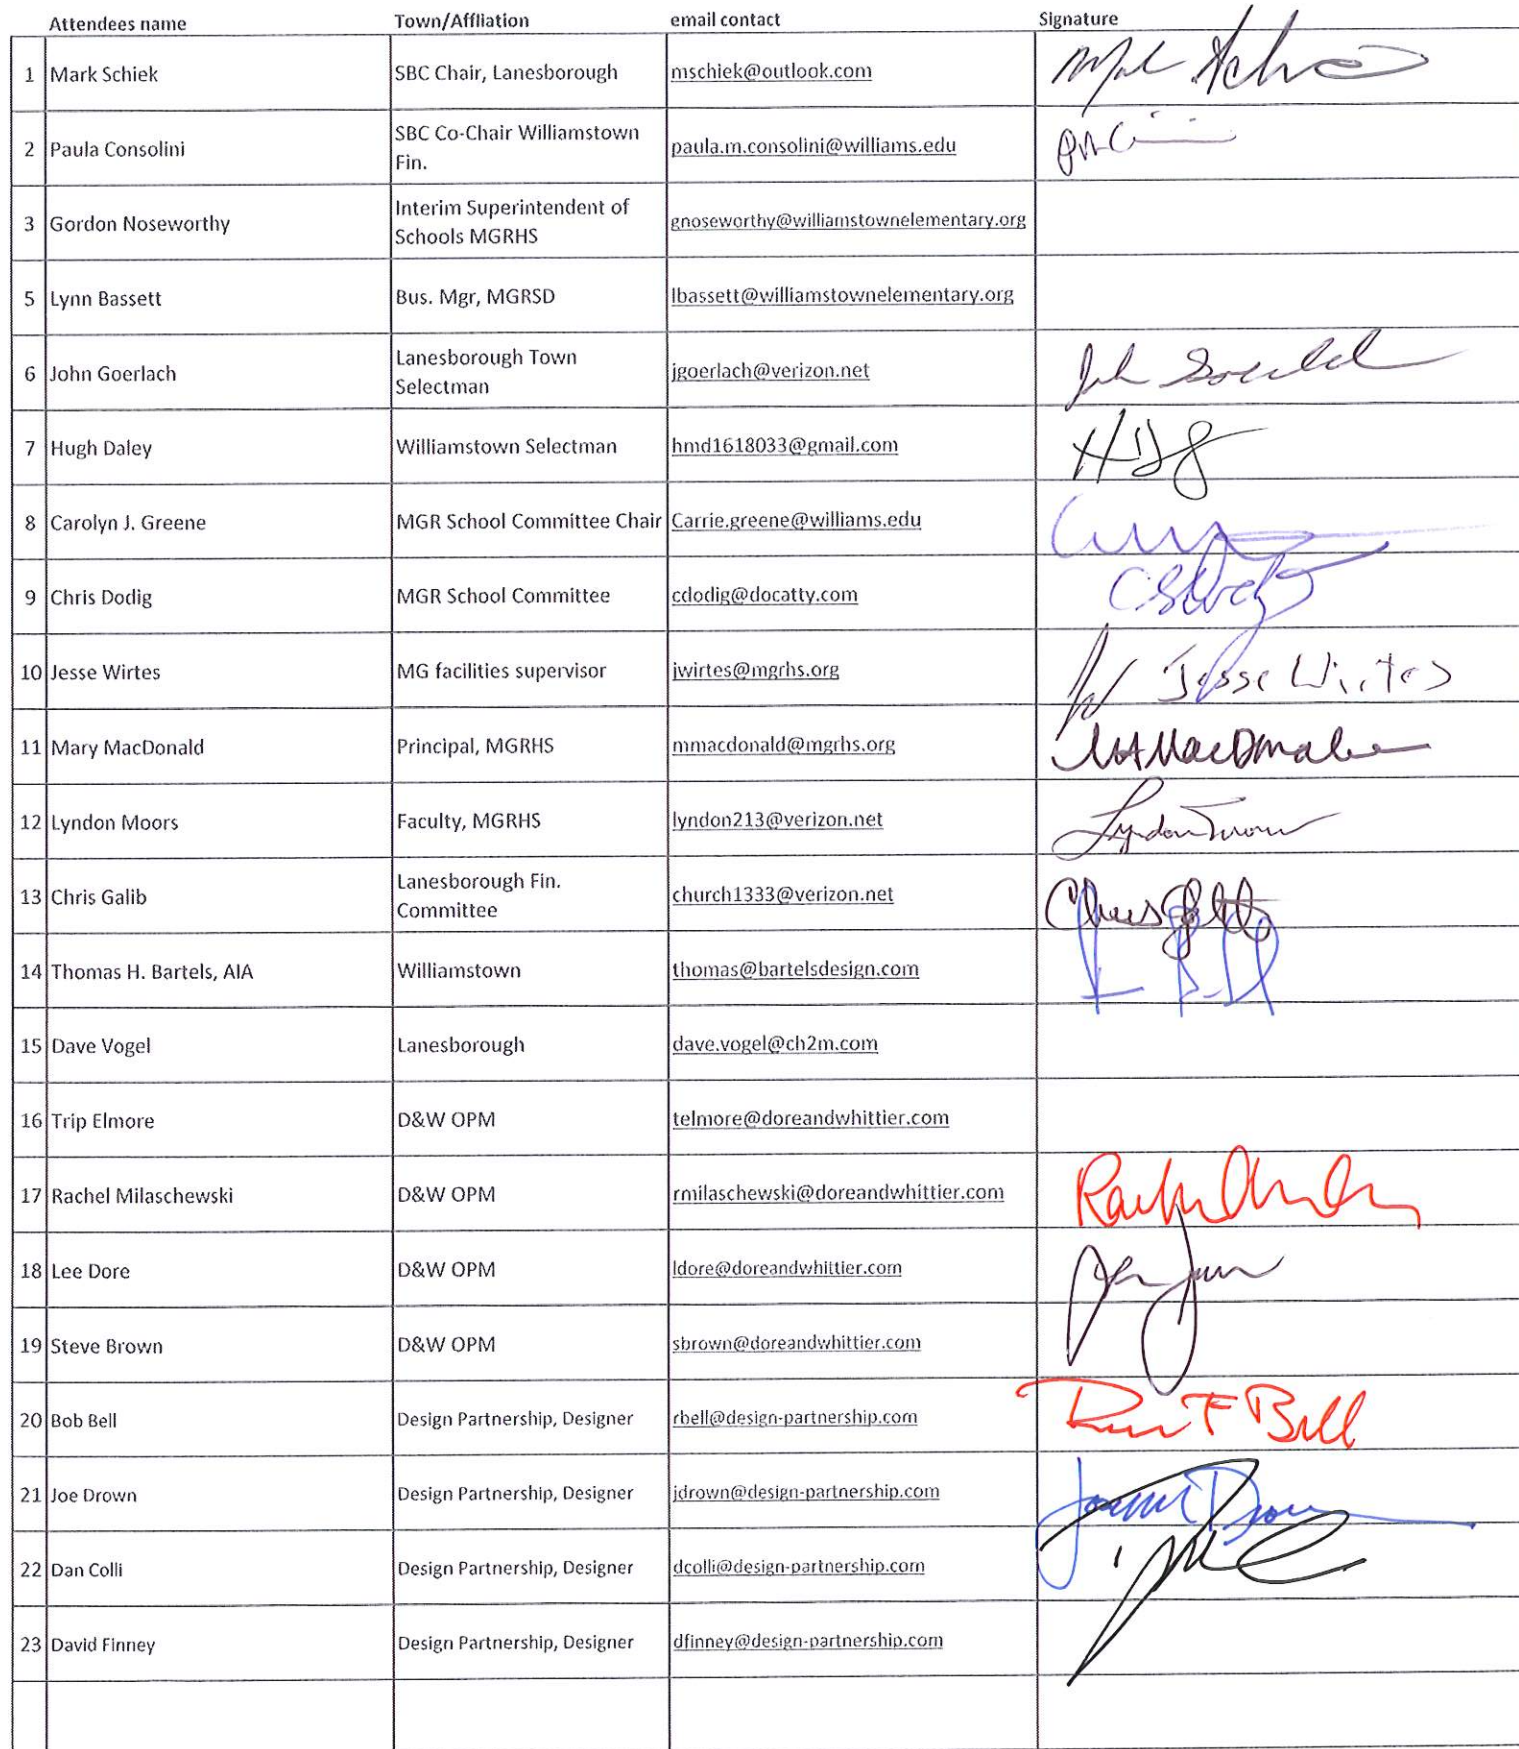 Attendees name Town/Affliation email contact Signature
1 Mark Schiek SBC Chair, Lanesborough mschiek@outlook.com
2 Paula Consolini SBC Co-Chair Williamstown Fin. paula.m.consolini@williams.edu
3 Gordon Noseworthy Interim Superintendent of Schools MGRHS gnoseworthy@williamstownelementary.org
5 Lynn Bassett Bus. Mgr, MGRSD lbassett@williamstownelementary.org
6 John Goerlach Lanesborough Town Selectman jgoerlach@verizon.net
7 Hugh Daley Williamstown Selectman hmd1618033@gmail.com
8 Carolyn J. Greene MGR School Committee Chair Carrie.greene@williams.edu
9 Chris Dodig MGR School Committee cdodig@docatty.com
10 Jesse Wirtes MG facilities supervisor jwirtes@mgrhs.org JW Jesse Wirtes
11 Mary MacDonald Principal, MGRHS mmacdonald@mgrhs.org
12 Lyndon Moors Faculty, MGRHS lyndon213@verizon.net
13 Chris Galib Lanesborough Fin. Committee church1333@verizon.net
14 Thomas H. Bartels, AIA Williamstown thomas@bartelsdesign.com
15 Dave Vogel Lanesborough dave.vogel@ch2m.com
16 Trip Elmore D&W OPM telmore@doreandwhittier.com
17 Rachel Milaschewski D&W OPM rmilaschewski@doreandwhittier.com
18 Lee Dore D&W OPM ldore@doreandwhittier.com
19 Steve Brown D&W OPM sbrown@doreandwhittier.com
20 Bob Bell Design Partnership, Designer rbell@design-partnership.com
21 Joe Drown Design Partnership, Designer jdrown@design-partnership.com
22 Dan Colli Design Partnership, Designer dcolli@design-partnership.com
23 David Finney Design Partnership, Designer dfinney@design-partnership.com